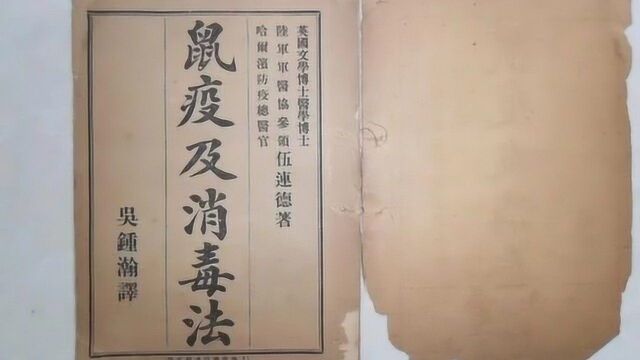 英國文學博士醫學博士
陸軍軍醫協參領伍連德著
哈爾濱防疫總醫官
鼠疫及消毒法
吳鍾瀚譯